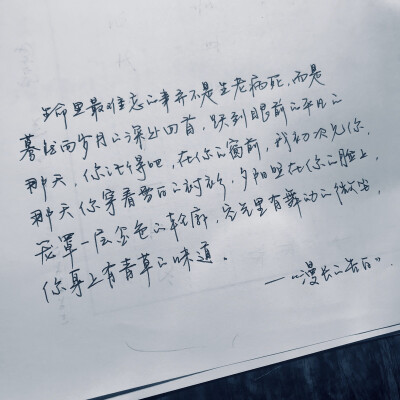 生命里最难忘的事并不是生老病死，而是
蓦然向岁月的深处回首，跃到眼前的平凡的
那天，你记得吧，在你的窗前，我初次见你，
那天你穿着雪白的衬衫，夕阳照在你的脸上，
笼罩一层金色的轮廓，光芒里有舞动的微尘，
你身上有青草的味道。
——“漫长的告白”.